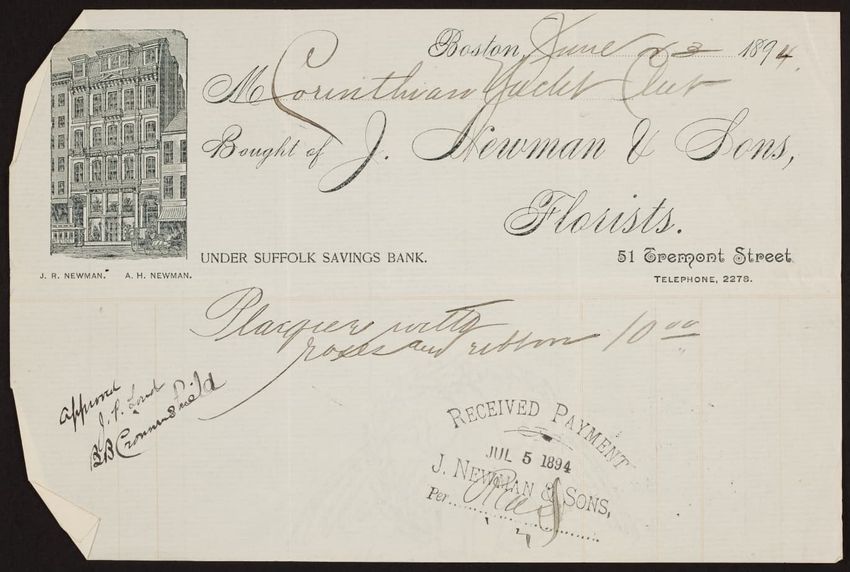 Boston, June 23 1894.
M Corinthian Yacht Club
Bought of J. Newman & Sons,
Florists.
UNDER SUFFOLK SAVINGS BANK.
51 Tremont Street
TELEPHONE, 2278.
J. R. NEWMAN. A. H. NEWMAN.
Plaque with
roses and ribbon 10 00
Approved
J. P. Loud
B B Crowninshield
RECEIVED PAYMENT
JUL 5 1894
J. NEWMAN & SONS,
Per